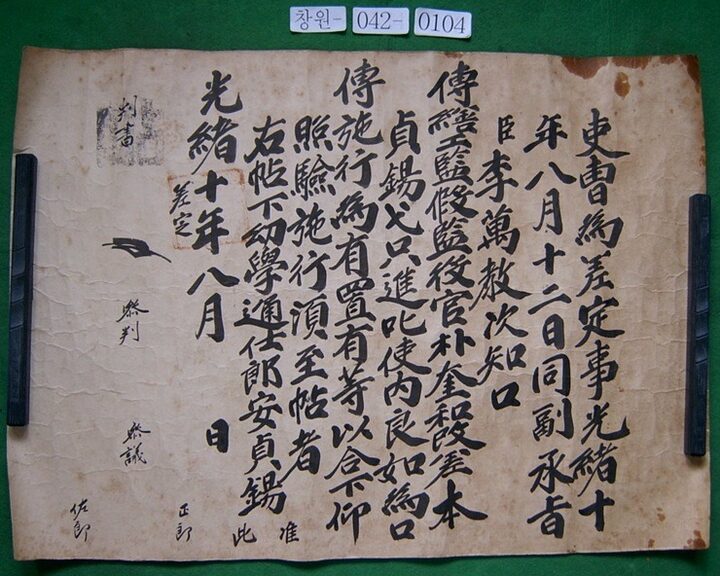 창원- 042- 0104
吏曹爲差定事光緖十
年八月十二日同副承旨
臣李萬敎次知口
傳繕工監假監役官朴奎 差本
貞錫弋只進叱使內良如爲口
傳施行爲有置有等以合下仰
照驗施行須至帖者
右帖下幼學通仕郎安貞錫
准
此
光緖十年八月 日
差定
正郎
判書
參判
參議
佐郎